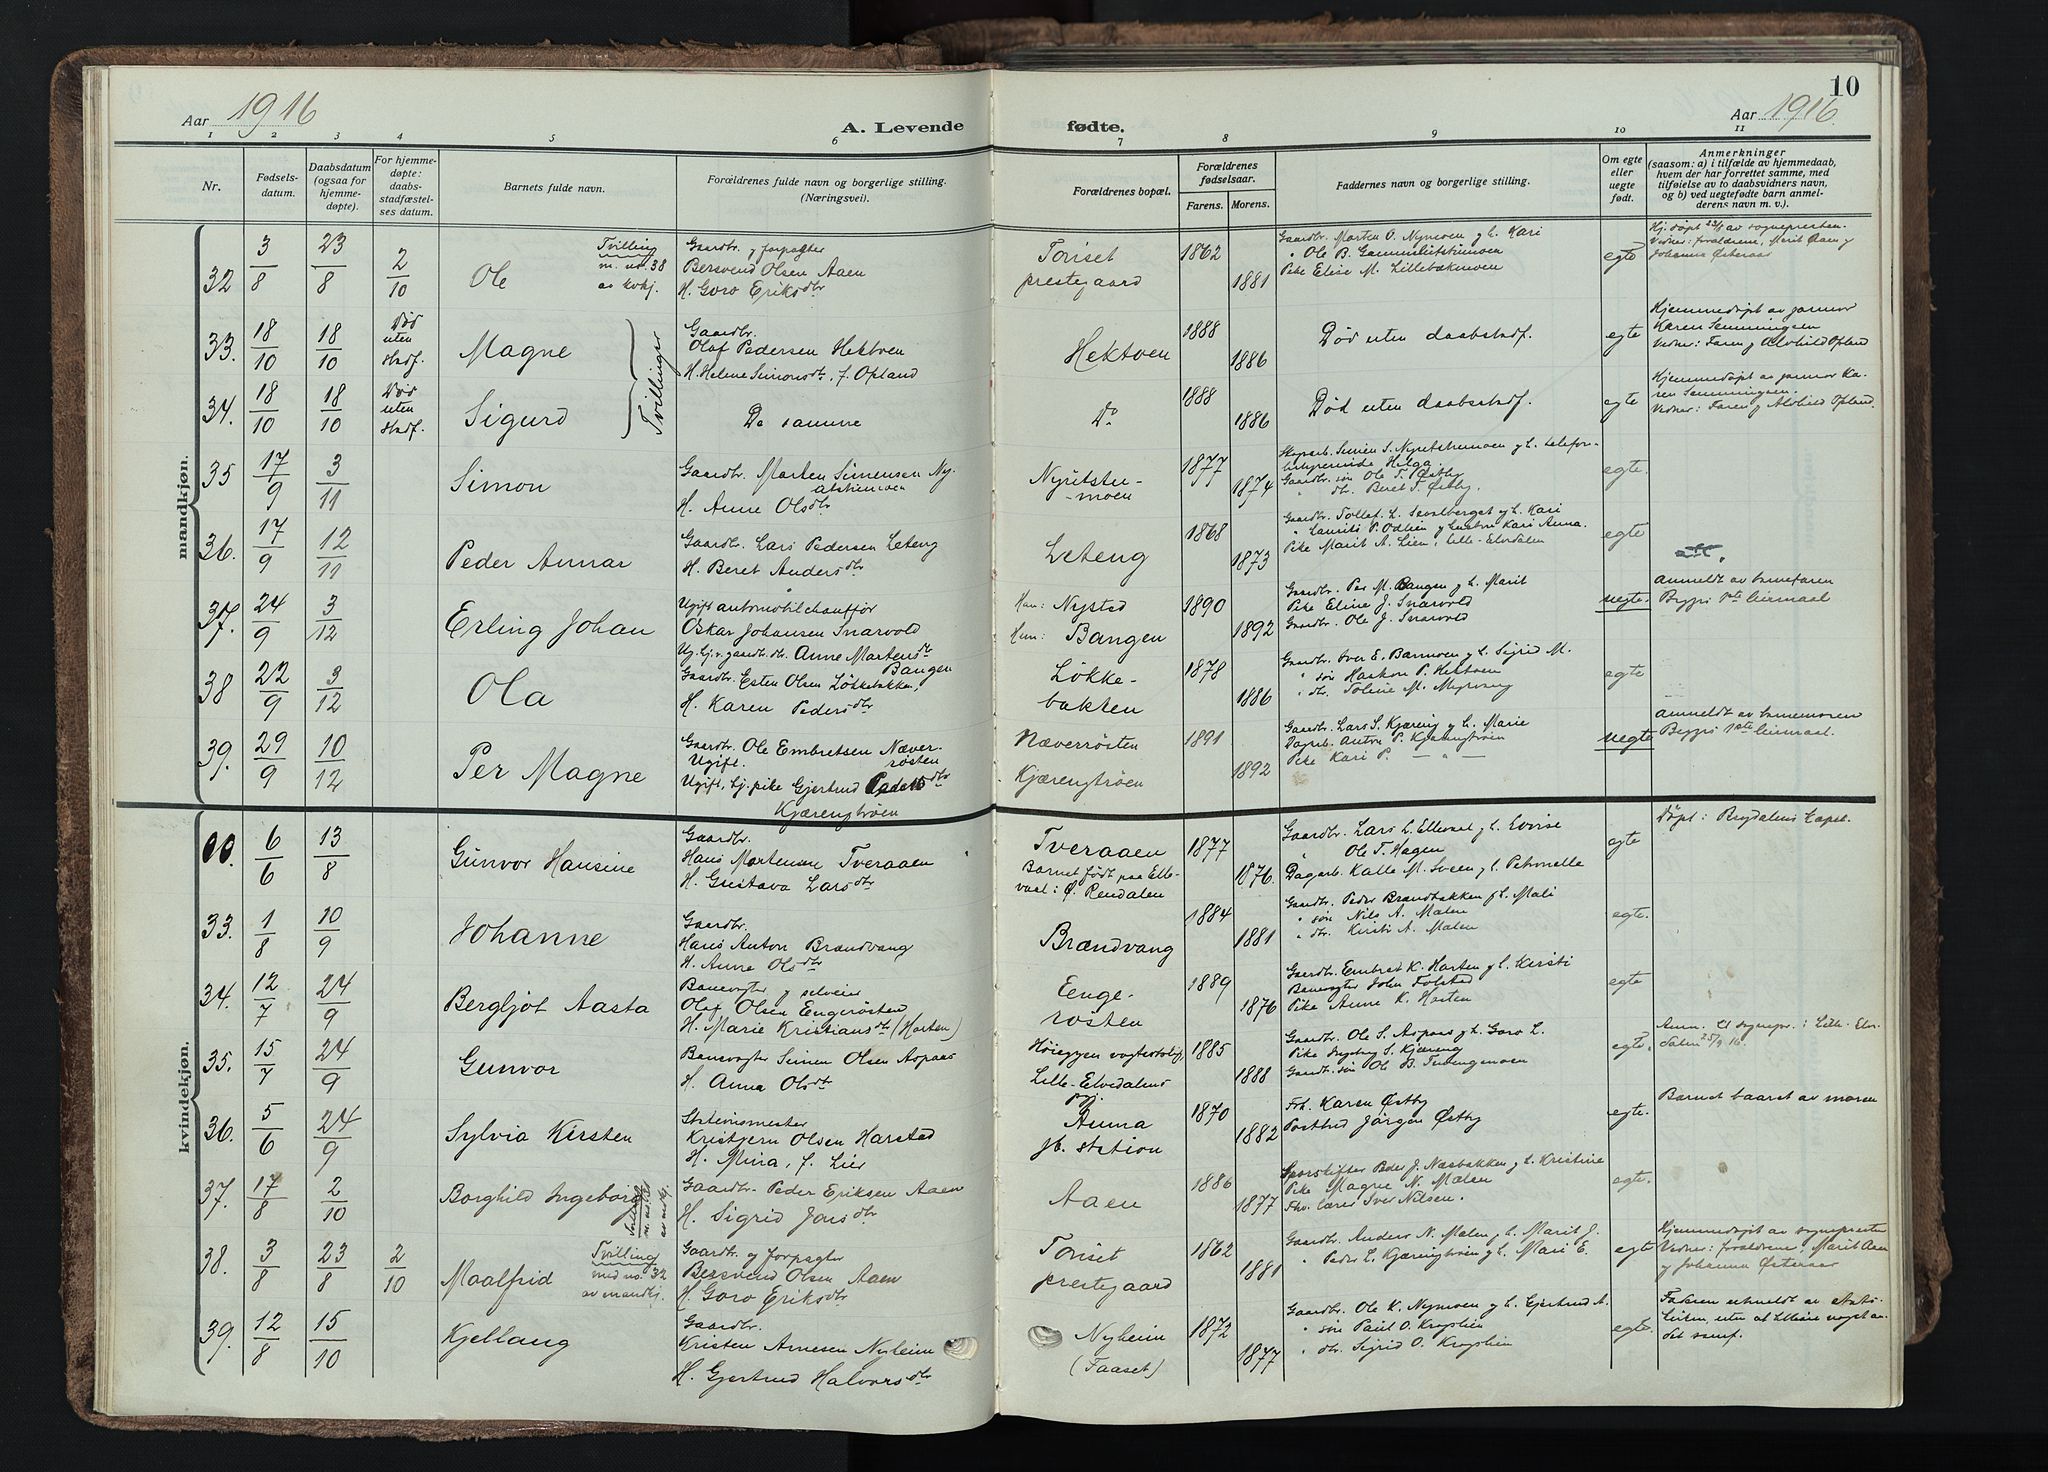 Aar 1916
A. Levende
fødte.
Aar 1916
10
1 2 3 4 5 6 7 8 9 10 11
Nr.
Fødsels-
datum.
Daabsdatum
(ogsaa for
hjemme-
døpte).
For hjemme-
døpte:
daabs-
stadfæstel-
ses datum.
Barnets fulde navn.
Forældrenes fulde navn og borgerlige stilling.
(Næringsvei).
Forældrenes bopæl.
Forældrenes
fødselsaar.
Farens.
Morens.
Faddernes navn og borgerlige stilling.
Om egte
eller
uegte
født.
Anmerkninger
(saasom: a) i tilfælde av hjemmedaab,
hvem der har forrettet samme, med
tilføielse av to daabsvidners navn,
og b) ved uegtefødte barn anmel-
derens navn m. v.).
mandkjøn.
32 3/8 23/8 2/10 Ole
Tvilling
m. no. 38
av kvkj.
Gaardbr. g forpagter
Bersvend Olsen Aaen
H. Goro Eriksdtr
Tønset
prestegaard
1862
1881
Gaardbr. Morten O. Nymoen g h. Kari
" Ole B.
Pike Elise M. Lillebækmoen
egte
Hj. døpt 23/8 av sognepresten.
Vidner: forældrene, Marit Aaen g
Johanna Østeraas
33. 18/10 18/10
Død
uten
stadf.
Magne
Tvillinger
Gaardbr.
Olaf Pedersen Hektoen
H. Helene Simonsdtr, f. Opland
Hektoen
1888
1886
Død uten daabstadf.
egte
Hjemmedøpt av jormor
Karen Semmingsen
Vidner: Faren g Alvhild Opland
34. 18/10 18/10
Død
uten
stadf.
Sigurd
De samme
Do
1888
1886
Død uten daabstadf.
egte
Hjemmedøpt av jormor Ka-
ren Semmingsen
Vidner: Faren g Alvhild Opland.
35 17/9 3/11 Simon
Gaardbr. Morten Simensen Ny-
H. Anne Olsdtr
-moen
1877
1874
Gaardbr. søn Ole T. Østby
" dtr. Beret T. Østby.
egte
36. 17/9 12/11 Peder Annar
Gaardbr. Lars Pedersen Leteng
H. Beret Andersdtr
Leteng
1868
1873
Gaardbr. Tollef L. g h. Kari
" Laurits P. Odlien g hustru Kari Anna.
Pike Marit A. Lien, Lille-Elvdalen
egte
37. 24/9 3/12 Erling Johan
Ugift automobilchauffør
Oskar Johansen Snarvold
Ug. hj.v. gaardbr. dtr. Anne Martensdtr
Bangen
Han: Nysted
Hun: Bangen
1890
1892
Gaardbr. Per M. Bangen g h. Marit
Pike Eline J. Snarvold
Gaardbr. Ole J. Snarvold
uegte.
Anmeldt av barnefaren
Begges 1ste leiermaal
38 22/9 3/12 Ola
Gaardbr. Esten Olsen Løkkebakken.
H. Karen Pedersdtr
Løkke-
bakken
1878
1886
Gaardbr. Iver E. Barmoen g h. Sigrid M.
" søn Haakon P. Hektoen
" dtr. Toline M. Myrvang
egte
39. 29/9 10/12 Per Magne
Gaardbr. Ole Embretsen Næver-
Ugift. røsten
Ugift, hj. pike Gjertrud Pedersdtr
Kjærengtrøen
Næverrøsten
Kjærengtrøen
1891
1892
Gaardbr. Lars S. Kjæreng g h. Marie
Dagarb. Anton P. Kjærengtrøen
Pike Kari P. — " —
uegte
Anmeldt av barnemoren
Begges 1ste leiermaal.
kvindekjøn.
6/6 13/8 Gunvor Hansine
Gaardbr.
Hans Mortensen Tveraaen
H. Gustava Larsdtr
Tveraaen
Barnet født paa Elle-
vaal i Ø. Rendalen
1877
1876.
Gaardbr. Lars L. Ellevaal g h.
" Ole T. Hagen
Dagarb. Kalle M. Sveen g h. Petronelle
egte
Døpt i Brydalens kapel.
33. 1/8 10/9 Johanne
Gaardbr.
Hans Anton Brændvang
H. Anne Olsdtr
Brændvang
1884
1881
Gaardbr. Peder Brændbakken g h. Mali
" søn Nils A. Malen
" dtr. Kirsti A. Malen
egte.
34. 12/7 24/9 Bergljot Aasta
Banevogter g selveier
Olaf Olsen Engerøsten
H. Marie Kristiansdtr (Horten)
Enge-
røsten
1889
1876
Gaardbr. Embret K. Horten g h. Kirsti
Banevogter John Tolstad
Pike Anne K. Horten
egte
35. 15/7 24/9 Gunvor
Banevogter Simen Olsen Aspaas
H. Anna Olsdtr
Høieggen vogterbolig,
Lille-Elvedalens
pgj.
1885
1888
Gaardbr. Ole S. Aspaas g h. Goro L.
Pike Ingebrg S. Kjæreng
egte.
Anm. til sognepr. i Lille-Elv-
dalen 25/9 16.
36. 5/6 24/9 Sylvia Kirsten
Stationsmester
Kristjern Olsen Harstad
H. Mina, f. Lier
Auma
jb. station
1870
1882
Frk. Karen Østby
Postbud Jörgen Østby
egte.
Barnet baaret av moren
37. 17/8 2/10 Borghild Ingeborg
Gaardbr. Peder Eriksen Aaen
H. Sigrid Jonsdtr
Aaen
1886
1877
Sporskifter Peder J. Næsbakken g h. Kristine
Pike Magne N. Malen
Fhv. lærer Iver Nilsen.
egte.
38. 3/8 23/8 2/10 Maalfrid
Tvilling
med no. 32
av mandkj.
Gaardbr. g forpagter
Bersvend Olsen Aaen
H. Goro Eriksdtr
Tønset
prestegaard
1862
1881
Gaardbr. Anders N. Malen g h. Marit J.
" Peder L. Kjærengtrøen g h. Mari E.
egte
Hjemmedøpt av sognepresten
Vidner: forældrene, Marit Aaen
g Johanna Østeraas
39. 12/8 15/10 Kjellaug
Gaardbr.
Kristen Arnesen Nyheim
H. Gjertrud Halvorsdtr
Nyheim
(Faaset)
1872
1877
Gaardbr. Ole K. Nymoen g h. Gjertrud A.
" søn Paul O. Krogslien
" dtr. Sigrid O. Krogslien
egte.
Faderen utmeldt av stats-
kirken, uten at tilhøre noget an-
det samf.